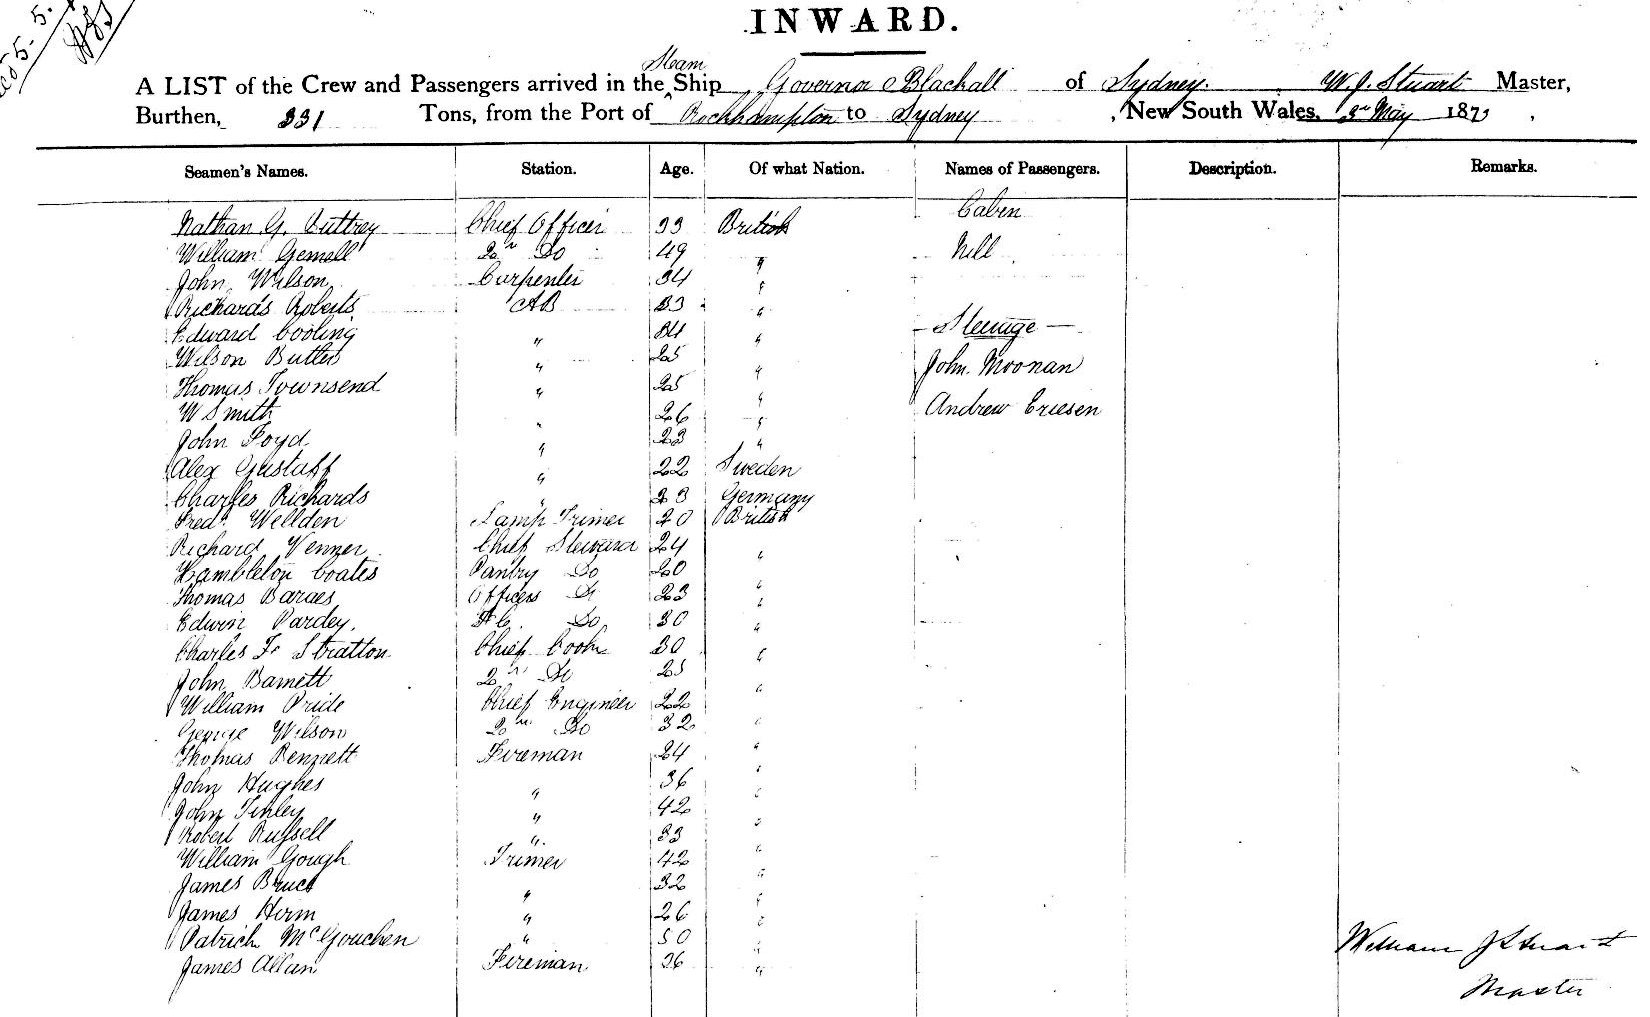 INWARD.
A LIST of the Crew and Passengers arrived in the Steam Ship Governor Blackall of Sydney. W. J. Stuart Master,
Burthen, 331 Tons, from the Port of Rockhampton to Sydney, New South Wales, May 187
Seamen's Names. Station. Age. Of what Nation. Names of Passengers. Description. Remarks.
Cabin
Nathan G. Buttrey Chief Officer 33 British
William Gemell 2nd Do 49 " Nill
John Wilson Carpenter 34 "
Richards Roberts AB 33 "
Edward Cooling " 34 " — Steerage —
Wilson Butler " 25 " John Moonan
Thomas Townsend " 25 "
W Smith " 26 " Andrew Eriesen
John Foyd " 23 "
Alex Gustaff " 22 Sweden
Charles Richards " 23 Germany
Fred. Wellden Lamp Trimer 20 British
Richard Venner Chief Steward 24 "
Hambleton Coates Pantry Do 20 "
Thomas Barnes Officers Do 23 "
Edwin Pardey. F.C. Do 30 "
Charles F. Stratton Chief Cook 30 "
John Barnett 2nd Do 25 "
William Pride Chief Engineer 22 "
George Wilson 2nd Do 32 "
Thomas Bennett Fireman 24 "
John Hughes " 36 "
John Finley " 42 "
Robert Russell " 33 "
William Gough Trimer 42 "
James Bruce " 32 "
James Hirm " 26 "
Patrick McGouchen " 50 " William J Stuart
James Allan Fireman 36 " Master